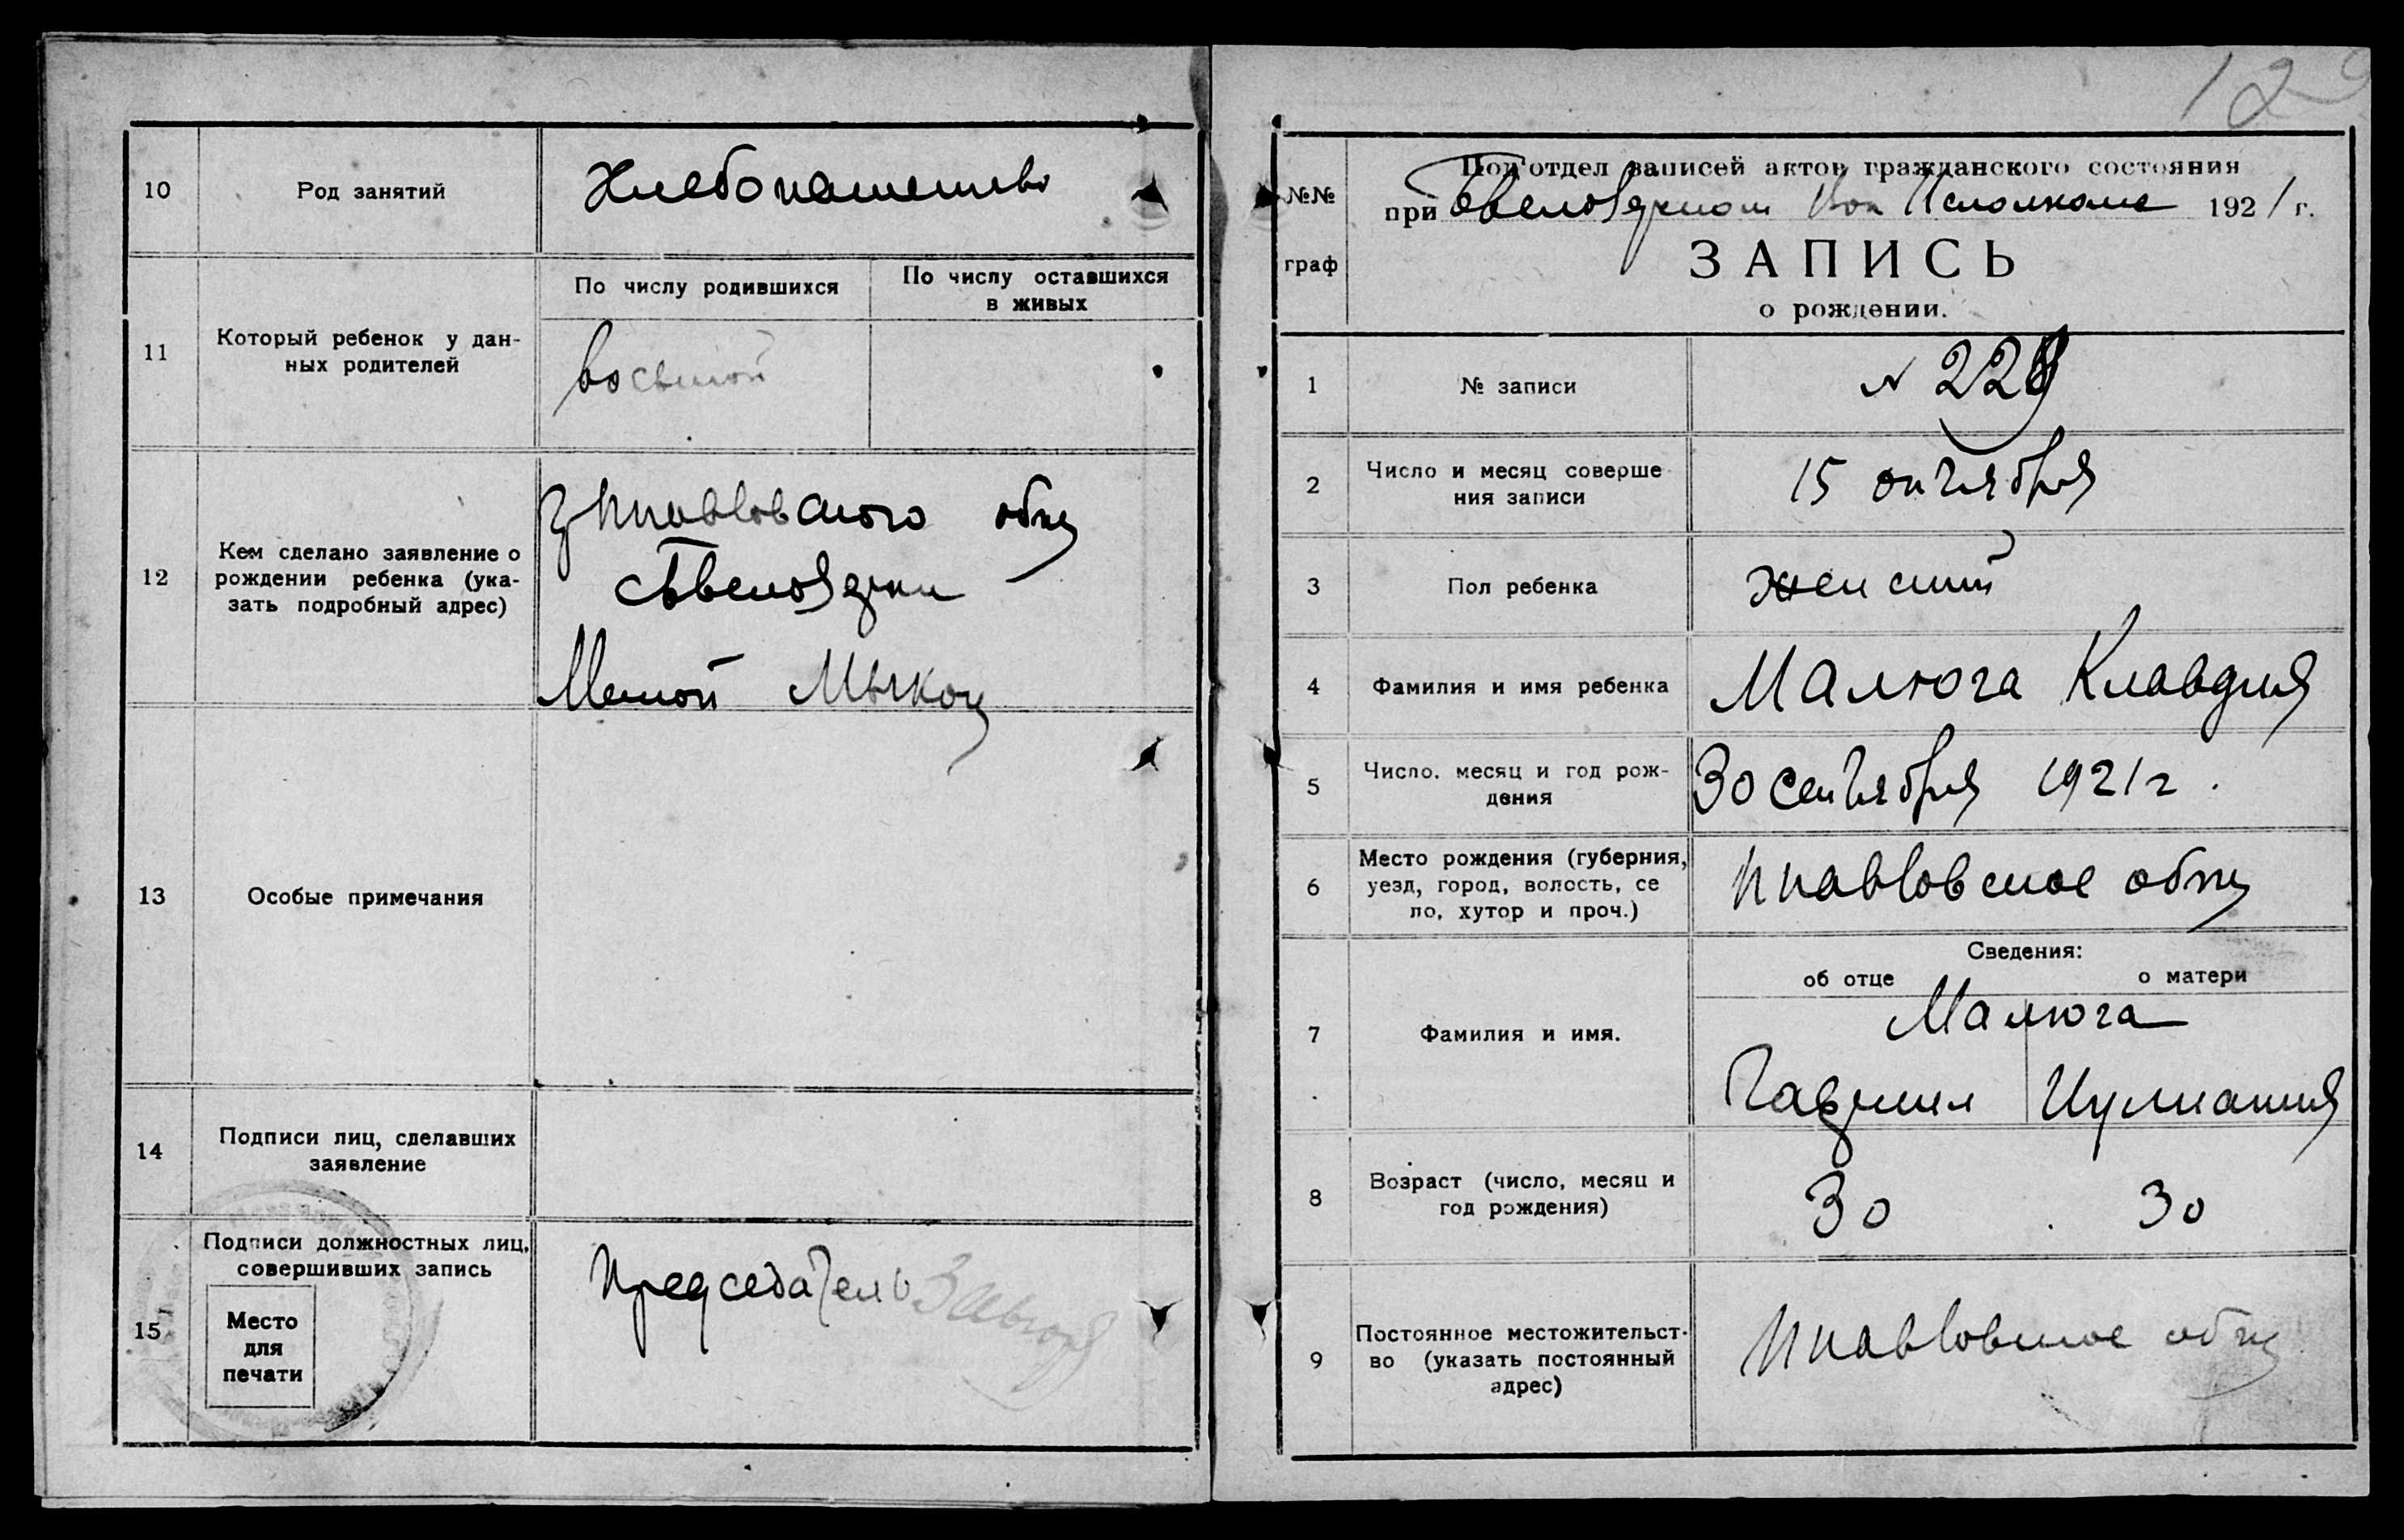 10
Род занятий
Хлебопашество
11
Который ребенок у дан-
ных родителей
По числу родившихся
По числу оставшихся
в живых
восьмой
12
Кем сделано заявление о
рождении ребенка (ука-
зать подробный адрес)
обпу
13
Особые примечания
14
Подписи лиц, сделавших
заявление
15
Подписи должностных лиц,
совершивших запись
Место
для
печати
Председатель
№№
граф
Под'отдел записей актов гражданского состояния
при Исполкоме 1921 г.
ЗАПИСЬ
о рождении.
1
№ записи
2
Число и месяц соверше
ния записи
15 октября
3
Пол ребенка
женский
4
Фамилия и имя ребенка
Малюга Клавдия
5
Число. месяц и год рож-
дения
30 сентября 1921 г.
6
Место рождения (губерния,
уезд, город, волость, се
ло, хутор и проч.)
7
Фамилия и имя.
Сведения:
об отце
о матери
Малюга
Гавриил
8
Возраст (число, месяц и
год рождения)
30
30
9
Постоянное местожительст-
во (указать постоянный
адрес)